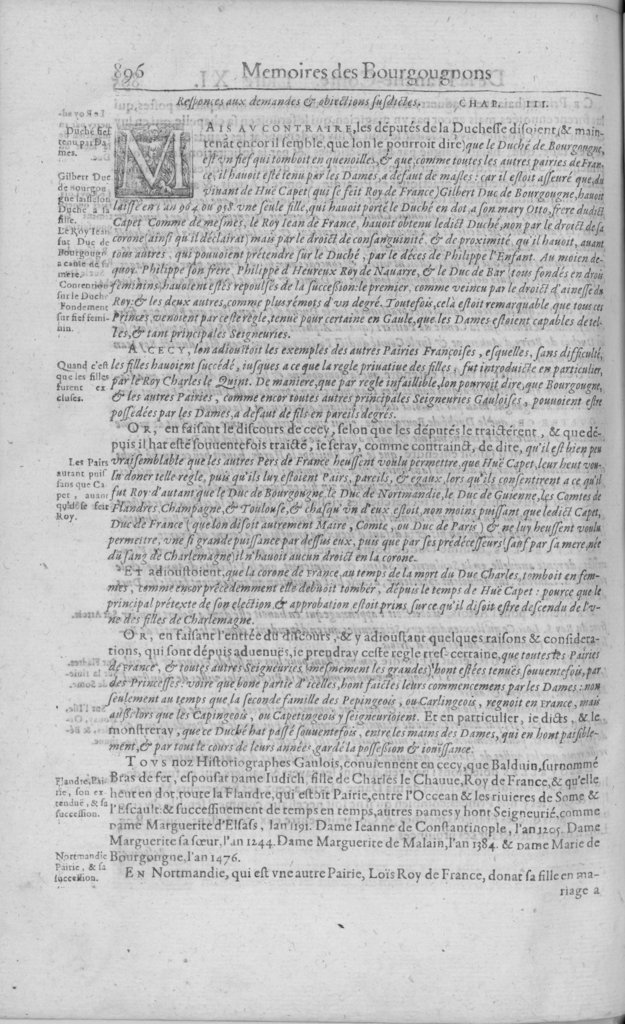 896 Memoires des Bourgougnons
Responces aux demandes & obiections susdictes. CHAP. III.
Duché fief
tenu par Da
mes.
MAIS AV CONTRAIRE, les députés de la Duchesse disoient, & main-
tenāt encor il semble, que lon le pourroit dire) que le Duché de Bourgongne,
est vn fief qui tomboit en quenoilles, & que, comme toutes les autres pairies de Fran-
ce, il hauoit esté tenu par les Dames, a defaut de masles: car il estoit asseuré que, du
viuant de Huë Capet (qui se feit Roy de France) Gilbert Duc de Bourgougne, hauoit
Gilbert Duc
de bourgou
gne laissa son
Duché a sa
fille.
laissé en l'an 964 ou 958. vne seule fille, qui hauoit porté le Duché en dot, a son mary Otto, frere dudict
Capet. Comme de mesmes, le Roy Iean de France, hauoit obtenu ledict Duché, non par le droict de sa
corone (ainsi qu'il déclairat) mais par le droict de consanguinité, & de proximité, qu'il hauoit, auant
tous autres, qui pouuoient prétendre sur le Duché, par le déces de Philippe l'Enfant. Au moien de-
quoy, Philippe son frere, Philippe d'Heureux Roy de Nauarre, & le Duc de Bar (tous fondés en droit
Le Roy Iean
fut Duc de
Bourgoungn
a cause de sa
mere.
feminin) hauoient estés repoulsés de la succession: le premier, comme veincu par le droict d'ainesse du
Roy: & les deux autres, comme plus remots d'vn degré. Toutefois, cela estoit remarquable, que tous ces
Princes, venoient par ceste regle, tenue pour certaine en Gaule, que les Dames estoient capables de tel-
les, & tant principales Seigneuries.
Contention
sur le Duché
Fondement
sur fief femi-
nin.
A CECY, lon adioustoit les exemples des autres Pairies Françoises, esquelles, sans difficulté,
les filles hauoient succédé, iusques a ce que la regle priuatiue des filles, fut introduicte en particulier,
par le Roy Charles le Quint. De maniere, que par regle infaillible, lon pourroit dire, que Bourgougne,
& les autres Pairies, comme encor toutes autres principales Seigneuries Gauloises, pouuoient estre
possedées par les Dames, a defaut de fils en pareils degrés.
Quand c'est
que les filles
furent ex
cluses.
OR, en faisant le discours de cecy, selon que les députés le traictérent, & que dé-
puis il hat esté souuentefois traicté, ie seray, comme contrainct, de dire, qu'il est bien peu
vraisemblable que les autres Pers de France heussent voulu permettre, que Huë Capet, leur heut vou-
lu doner telle regle, puis qu'ils luy estoient Pairs, pareils, & egaux, lors qu'ils consentirent a ce qu'il
fut Roy: d'autant que le Duc de Bourgougne, le Duc de Nortmandie, le Duc de Guienne, les Comtes de
Flandres, Champagne, & Toulouse, & chasqu'vn d'eux estoit, non moins puissant que ledict Capet,
Duc de France (que lon disoit autrement Maire, Comte, ou Duc de Paris) & ne luy heussent voulu
permettre, vne si grande puissance par dessus eux, puis que par ses prédécesseurs (sauf par sa mere, née
du sang de Charlemagne) il n'hauoit aucun droict en la corone.
Les Pairs
autant puis-
sans que Ca
pet, auant
qu'il se feit
Roy.
ET adioustoient, que la corone de France, au temps de la mort du Duc Charles, tomboit en fem-
mes, comme encor précédemment elle debuoit tomber, depuis le temps de Huë Capet: pource que le
principal prétexte de son election, & approbation estoit prins, sur ce qu'il disoit estre descendu de l'v-
ne des filles de Charlemagne.
OR, en faisant l'entrée du discours, & y adioustant quelques raisons & considera-
tions, qui sont dépuis aduenuës, ie prendray ceste regle tres-certaine, que toutes les Pairies
de France, & toutes autres Seigneuries (mesmement les grandes) hont estées tenuës souuentefois, par
des Princesses: voire que bone partie d'icelles, hont faictes leurs commencemens par les Dames: non
seulement au temps que la seconde famille des Pepingeois, ou Carlingeois, regnoit en France, mais
aussi lors que les Capingeois, ou Capetingeois y seigneurioient. Et en particulier, ie dicts, & le
monstreray, que ce Duché hat passé souuentefois, entre les mains des Dames, qui en hont paisible-
ment, & par tout le cours de leurs années, gardé la possession & iouissance.
TOVS noz Historiographes Gaulois, conuiennent en cecy, que Balduin, surnommé
Bras de fer, espousat Dame Iudich, fille de Charles le Chauue, Roy de France, & qu'elle
heut en dot, toute la Flandre, qui estoit Pairie, entre l'Occean & les riuieres de Some &
l'Escault: & successiuement de temps en temps, autres Dames y hont Seigneurié, comme
Dame Marguerite d'Elsass, lan 1191. Dame Ieanne de Constantinople, l'an 1205. Dame
Marguerite sa sœur, l'an 1244. Dame Marguerite de Malain, l'an 1384. & Dame Marie de
Bourgongne, l'an 1476.
Flandre, Pai
rie, son ex
tenduë, & sa
succession.
EN Nortmandie, qui est vne autre Pairie, Loïs Roy de France, donat sa fille en ma-
riage a
Nortmandie
Pairie, & sa
succession.